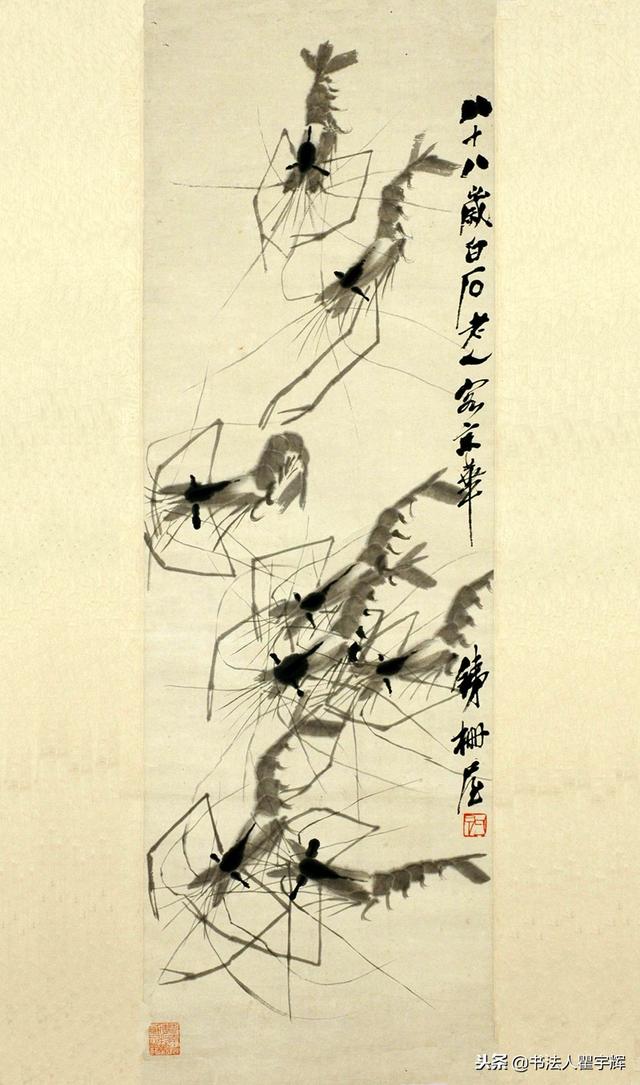 八十八歲白石老人客京華
鐵柵屋
头条 @书法人瞿宇辉